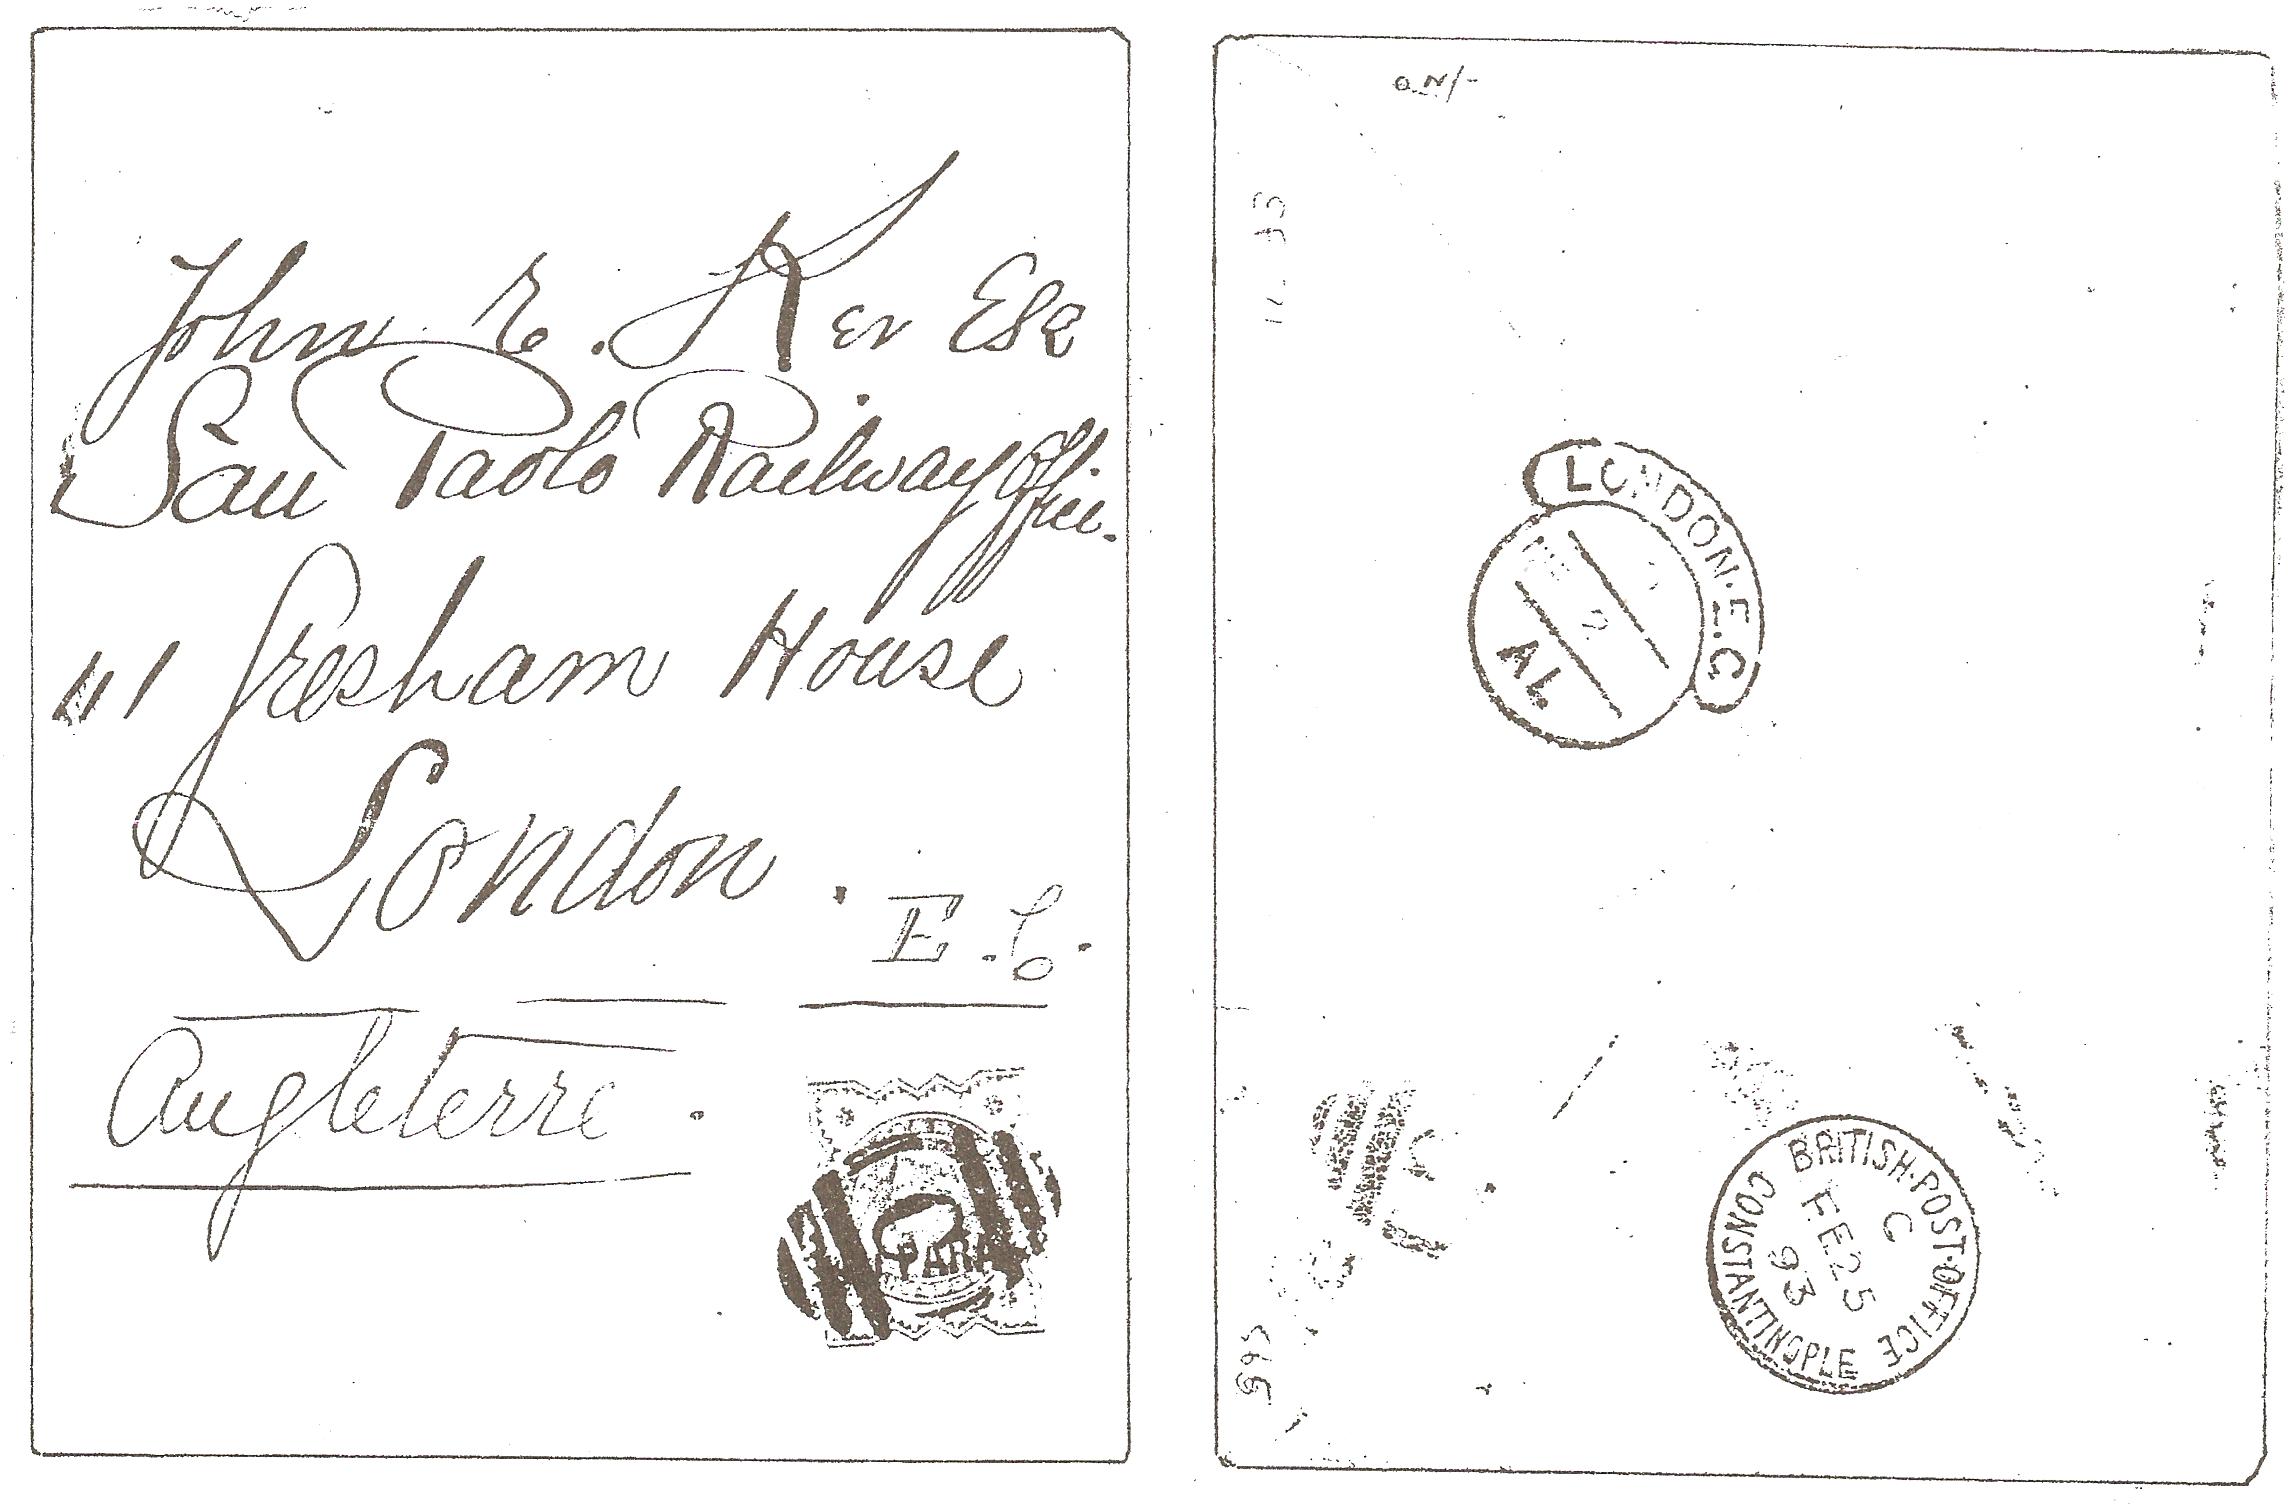 John E. Ker Esq
San Paolo Railway Office.
111 Gresham House
London. E.C.
Angleterre.
PARA
O.N/-
LONDON.E.C.
2
BRITISH·POST·OFFICE
C
FE25
93
CONSTANTINOPLE